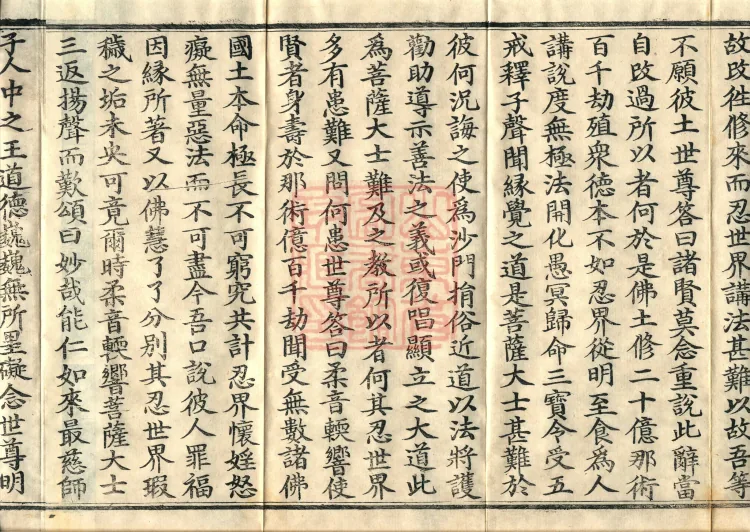 故改徃修來而忍世界講法甚難以故吾等
不願彼土世尊答曰諸賢莫念重說此辭當
自改過所以者何於是佛土修二十億那術
百千劫殖衆徳本不如忍界從明至食爲人
講說度無極法開化愚冥歸命三寶令受五
戒釋子聲聞緣覺之道是菩薩大士甚難於
彼何況誨之使爲沙門捐俗近道以法將護
勸助導示善法之義或復唱顯立之大道此
爲菩薩大士難及之教所以者何其忍世界
多有患難又問何患世尊答曰柔音輭響使
賢者身壽於那術億百千劫聞受無數諸佛
國土本命極長不可窮究共計忍界懷婬怒
癡無量惡法而不可盡今吾口說彼人罪福
因縁所著又以佛慧了了分別其忍世界瑕
穢之垢未央可竟爾時柔音輭響菩薩大士
三返揚聲而歎頌曰妙哉能仁如來最慈師
子人中之王道德巍巍無所罣礙念世尊明